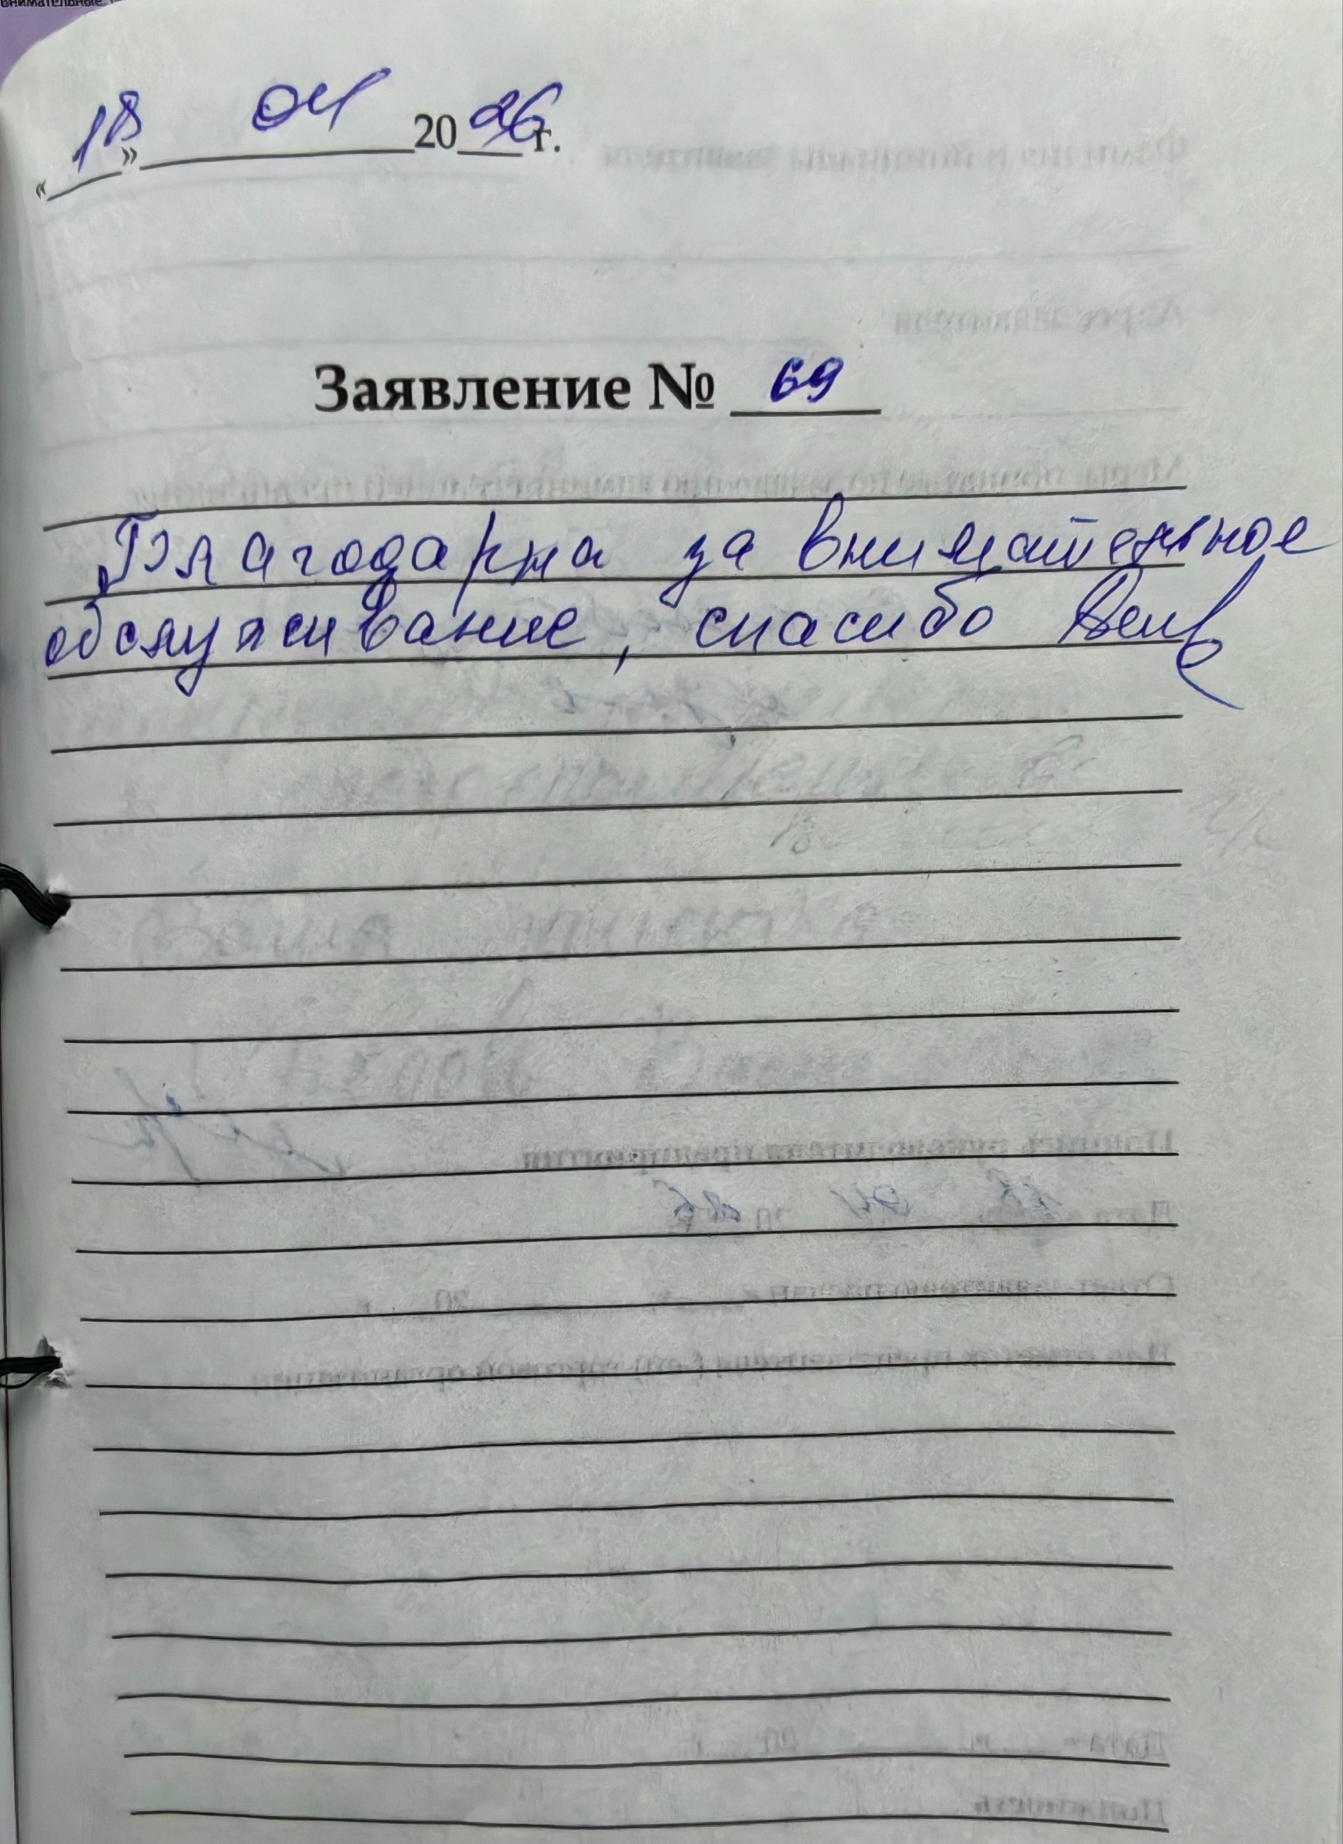 «18» 04 2026 г.
Заявление № 69
Благодарна за внимательное
обслуживание, спасибо